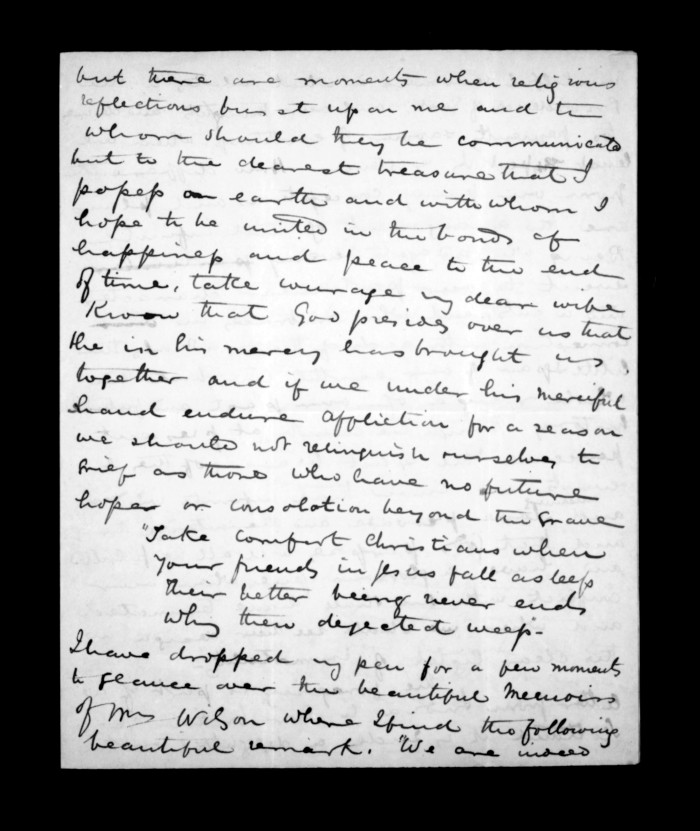 but there are moments when religious
reflections burst upon me and to
whom should they be communicated
but to the dearest treasure that I
posess on earth and with whom I
hope to be united in the bonds of
happiness and peace to the end
of time, take courage my dear wife
Know that God presides over us that
He in his mercy has brought us
together and if we under his merciful
hand endure affliction for a season
we should not relinquish ourselves to
grief as those who have no future
hope or consolation beyond the grave
"Take comfort Christians when
your friends in Jesus fall asleep
their better being never ends
why then dejected weep-
I have dropped my pen for a few moments
to glance over the beautiful Memoirs
of Mrs Wilson where I find the following
beautiful remark. "We are indeed